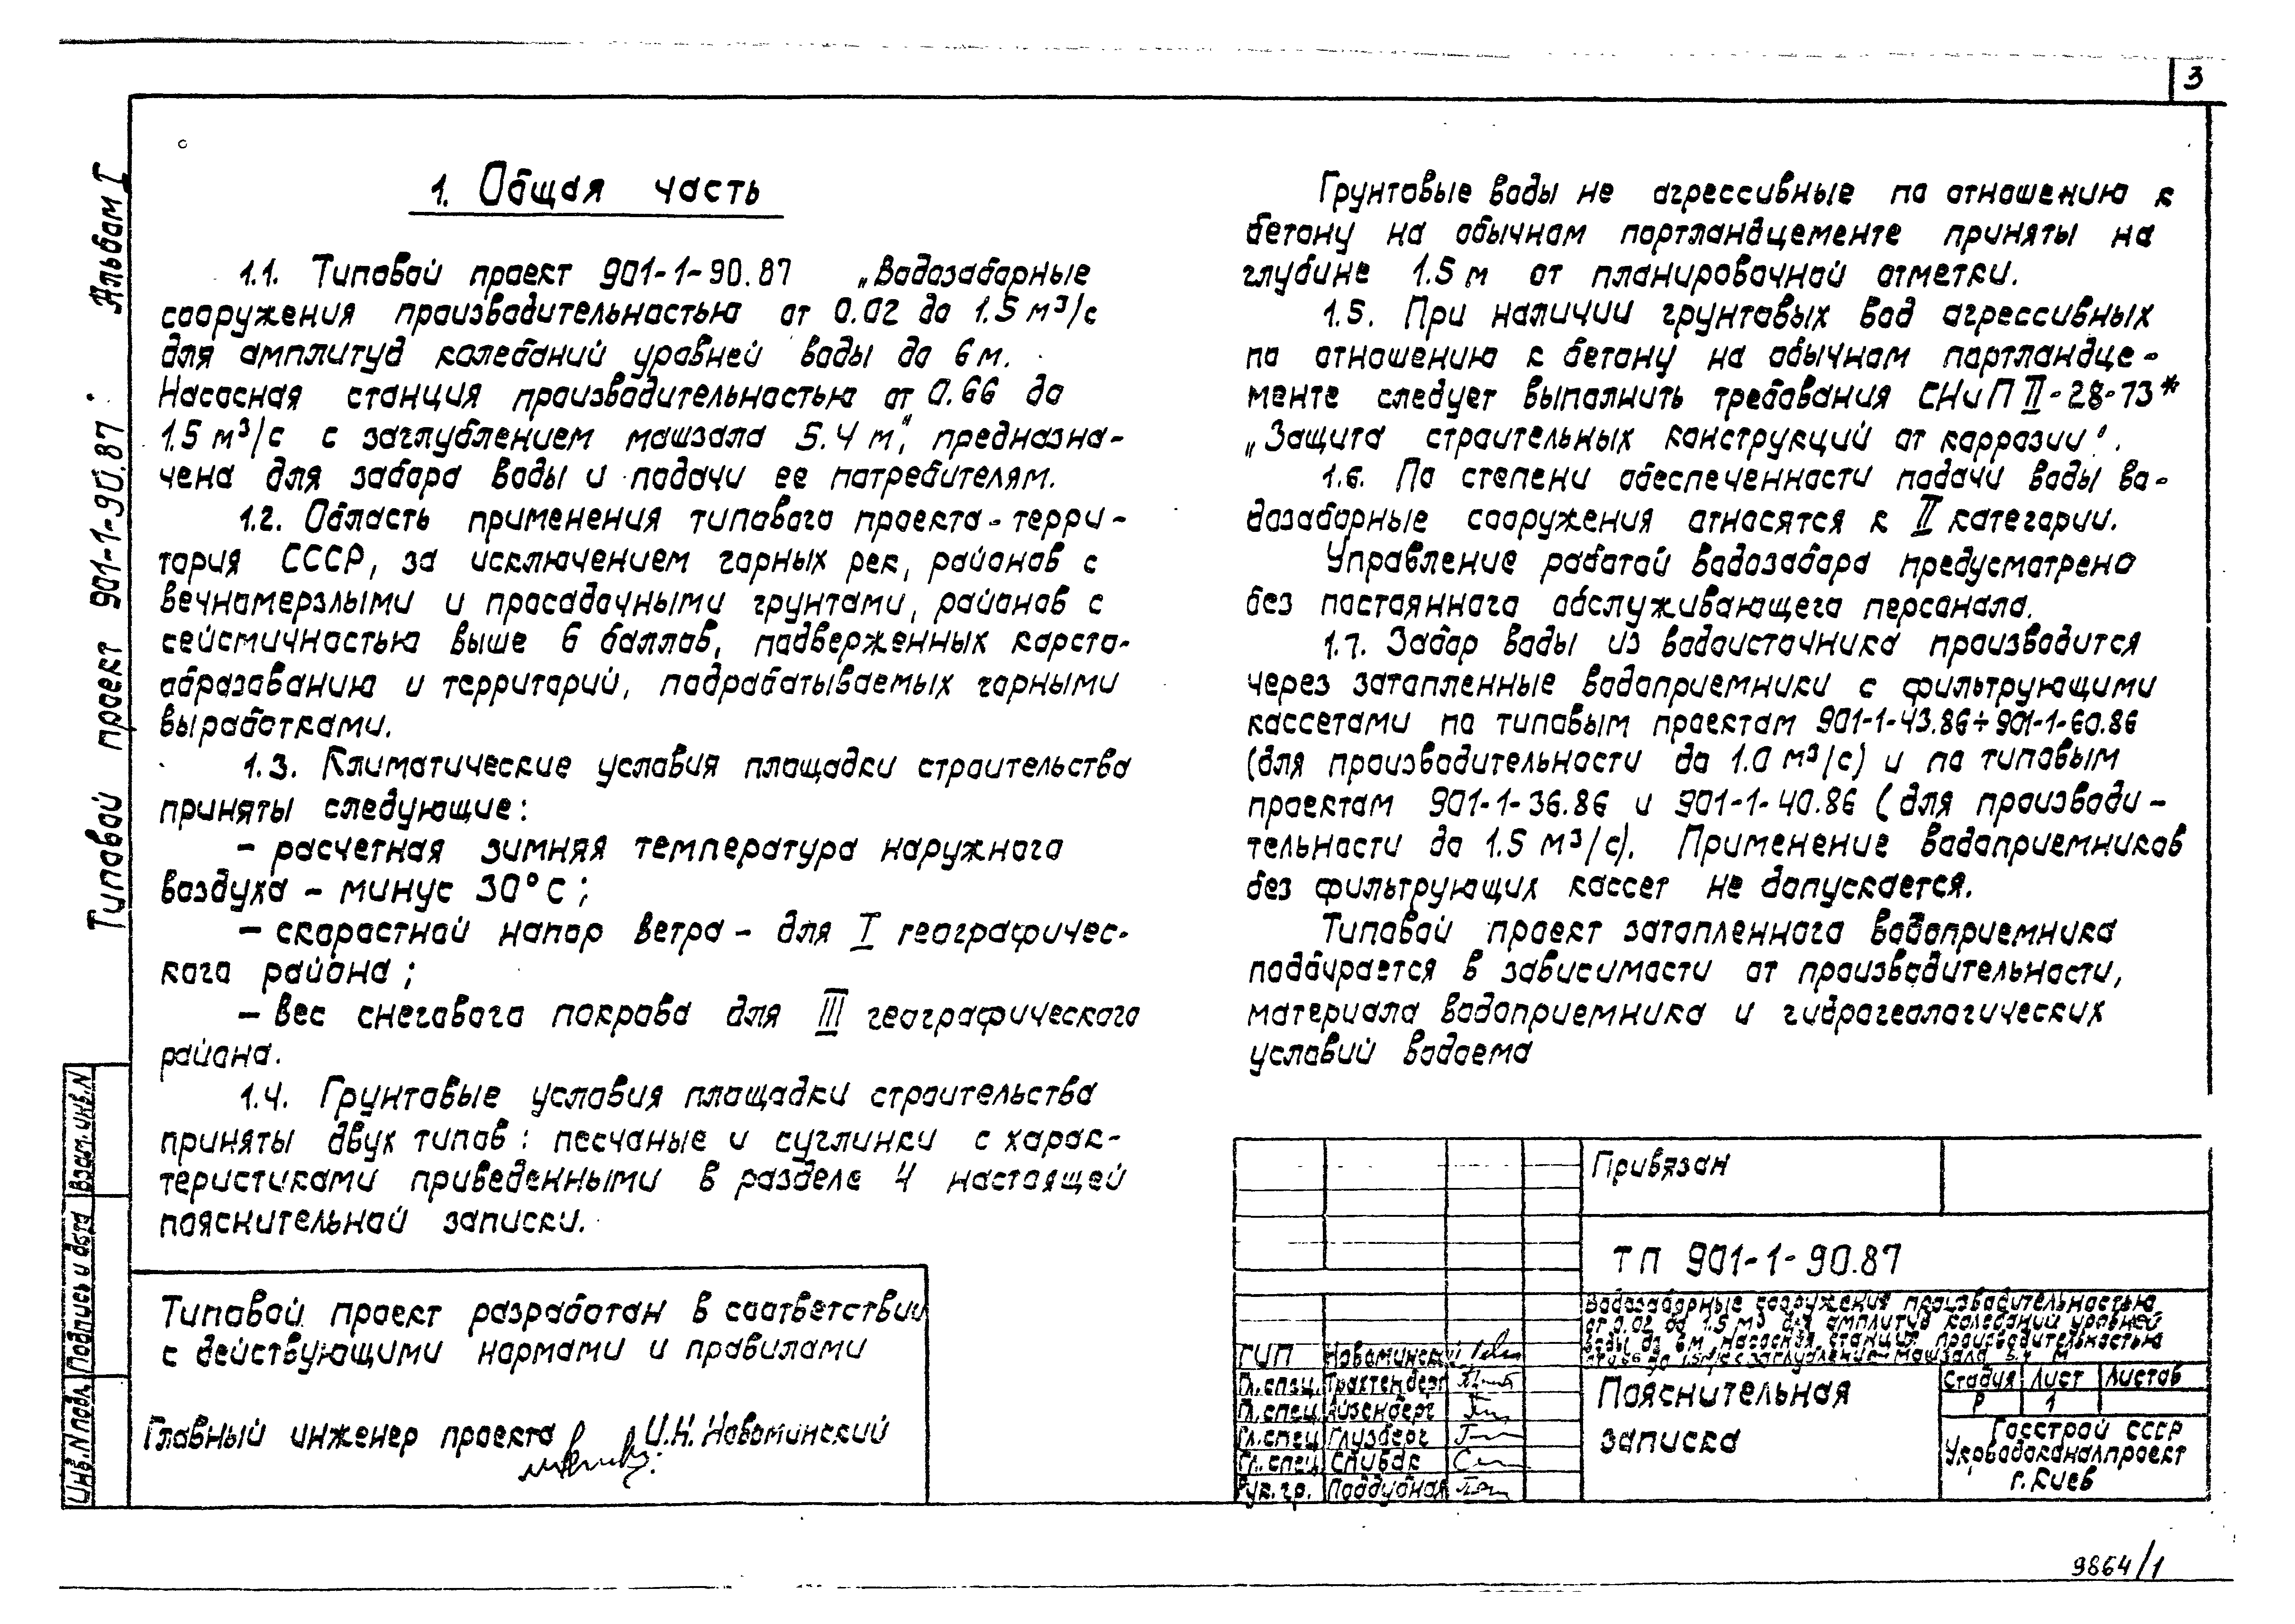 3
Типовой проект 901-1-90.87. Альбом I
1. Общая часть
1.1. Типовой проект 901-1-90.87 „Водозаборные
сооружения производительностью от 0.02 до 1.5 м³/с
для амплитуд колебаний уровней воды до 6 м.
Насосная станция производительностью от 0.66 до
1.5 м³/с с заглублением машзала 5.4 м", предназна-
чена для забора воды и подачи ее потребителям.
1.2. Область применения типового проекта - терри-
тория СССР, за исключением горных рек, районов с
вечномерзлыми и просадочными грунтами, районов с
сейсмичностью выше 6 баллов, подверженных карсто-
образованию и территорий, подрабатываемых горными
выработками.
1.3. Климатические условия площадки строительства
приняты следующие:
- расчетная зимняя температура наружного
воздуха - минус 30°С;
- скоростной напор ветра - для I географичес-
кого района;
- вес снегового покрова для III географического
района.
1.4. Грунтовые условия площадки строительства
приняты двух типов: песчаные и суглинки с харак-
теристиками приведенными в разделе 4 настоящей
пояснительной записки.
Типовой проект разработан в соответствии
с действующими нормами и правилами
Главный инженер проекта И.Н. Новоминский
Грунтовые воды не агрессивные по отношению к
бетону на обычном портландцементе приняты на
глубине 1.5 м от планировочной отметки.
1.5. При наличии грунтовых вод агрессивных
по отношению к бетону на обычном портландце-
менте следует выполнить требования СНиП II-28-73*
„Защита строительных конструкций от коррозии".
1.6. По степени обеспеченности подачи воды во-
дозаборные сооружения относятся к II категории.
Управление работой водозабора предусмотрено
без постоянного обслуживающего персонала.
1.7. Забор воды из водоисточника производится
через затопленные водоприемники с фильтрующими
кассетами по типовым проектам 901-1-43.86÷901-1-60.86
(для производительности до 1.0 м³/с) и по типовым
проектам 901-1-36.86 и 901-1-40.86 (для производи-
тельности до 1.5 м³/с). Применение водоприемников
без фильтрующих кассет не допускается.
Типовой проект затопленного водоприемника
подбирается в зависимости от производительности,
материала водоприемника и гидрогеологических
условий водоема
Привязан
ТП 901-1-90.87
Водозаборные сооружения производительностью
от 0.02 до 1.5 м³ для амплитуд колебаний уровней
воды до 6м. Насосная станция производительностью
от 0.66 до 1.5 м³/с с заглублением машзала 5.4 м
ГИП Новоминский
Гл.спец. Трахтенберг
Гл.спец. Айзенберг
Гл.спец Глузберг
Гл.спец Спивак
Рук.гр. Поддубная
Пояснительная
записка
Стадия Лист Листов
Р 1
Госстрой СССР
Укрводоканалпроект
г. Киев
Инв.N подл. Подпись и дата Взам.инв.N
9864/1